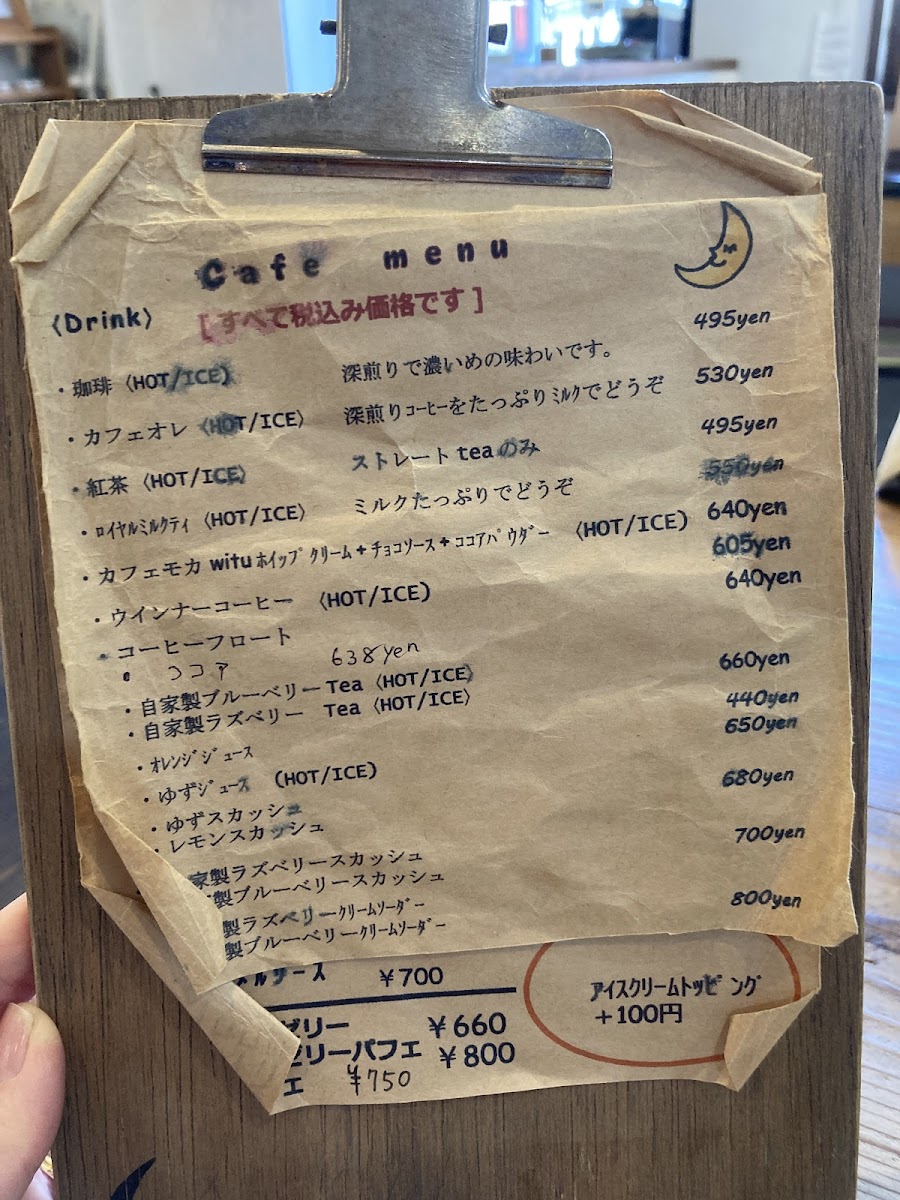 Cafe menu
〈Drink〉 [すべて税込み価格です]
・珈琲〈HOT/ICE〉 深煎りで濃いめの味わいです。 495yen
・カフェオレ〈HOT/ICE〉 深煎りｺｰﾋｰをたっぷりﾐﾙｸでどうぞ 530yen
・紅茶〈HOT/ICE〉 ストレートteaのみ 495yen
・ﾛｲﾔﾙﾐﾙｸﾃｨ〈HOT/ICE〉 ミルクたっぷりでどうぞ 550yen
・カフェモカ wituﾎｲｯﾌﾟｸﾘｰﾑ+ﾁｮｺｿｰｽ+ｺｺｱﾊﾟｳﾀﾞｰ 〈HOT/ICE〉 640yen
・ウインナーコーヒー 〈HOT/ICE〉 605yen
・コーヒーフロート 640yen
・ココア 638yen
・自家製ブルーベリーTea〈HOT/ICE〉 660yen
・自家製ラズベリー Tea〈HOT/ICE〉
・ｵﾚﾝｼﾞｼﾞｭｰｽ 440yen
・ゆずｼﾞｭｰｽ (HOT/ICE) 650yen
・ゆずスカッシュ 680yen
・レモンスカッシュ
家製ラズベリースカッシュ 700yen
製ブルーベリースカッシュ
製ラズベリーｸﾘｰﾑｿｰﾀﾞｰ 800yen
製ブルーベリーｸﾘｰﾑｿｰﾀﾞｰ
ｿｰｽ ¥700
ゼリー ¥660
ゼリーパフェ ¥800
ェ ¥750
ｱｲｽｸﾘｰﾑﾄｯﾋﾟﾝｸﾞ
+100円